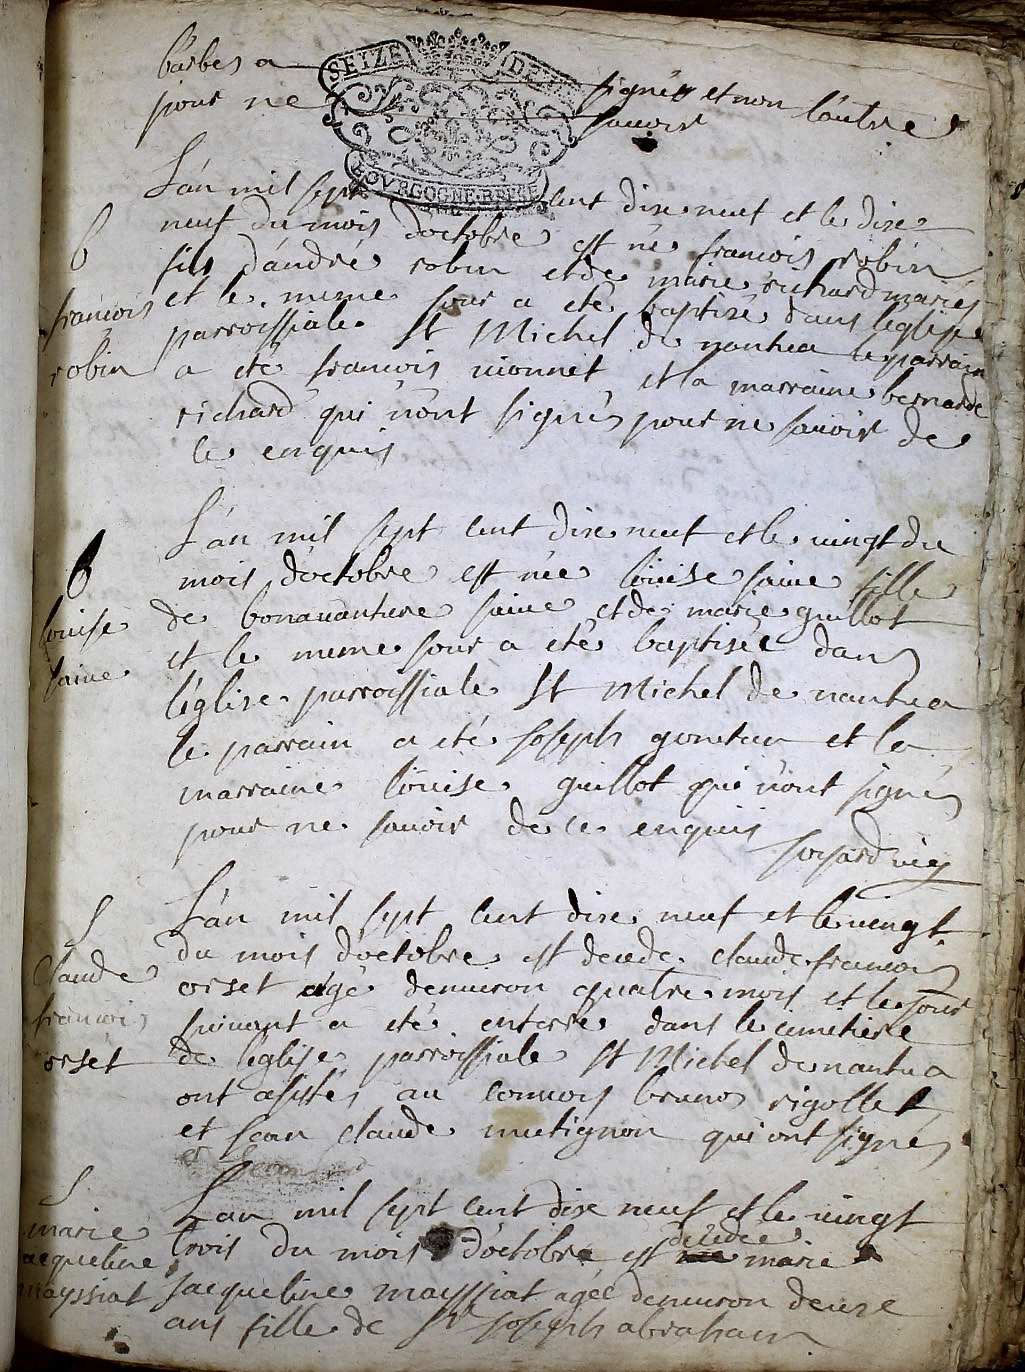 barbes a signés et non l'autre
pour ne savoir
SEIZE DEN
BOURGOGNE BRESSE
L'an mil sept cent dixe neuf et le dixe
neuf du mois d'octobre est né francois robin
fils d'andré robin et de marie richard mariés
et le meme jour a eté baptisé dans l'église
parroissiale St Michel de nantua le parrain
a eté francois nionnet et la marraine bernarde
richard qui n'ont signés pour ne savoir de
ce enquis
b
francois
robin
L'an mil sept cent dixe neuf et le vingt du
mois d'octobre est née loüise saive fille
de bonavanture saive et de marie guillot
et le meme jour a eté baptisée dans
l'église parroissiale St Michel de nantua
le parrain a eté joseph gonetan et la
marraine loüise guillot qui n'ont signés
pour ne savoir de ce enquis
b
louise
saive
L'an mil sept cent dixe neuf et le vingt
du mois d'octobre est decede claude francois
orset agé denviron quatre mois et le jour
suivant a eté enterré dans le cimetiere
de l'eglise parroissiale St Michel de nantua
ont asistés au convois bruno rigollet
et jean claude mutignon qui ont signés
S
Claude
francois
orset
L'an mil sept cent dixe neuf et le vingt
trois du mois d'octobre est décedée marie
jacqueline mayssiat agée denviron deuxe
ans fille de Sr joseph abraham
S
marie
jacqueline
mayssiat